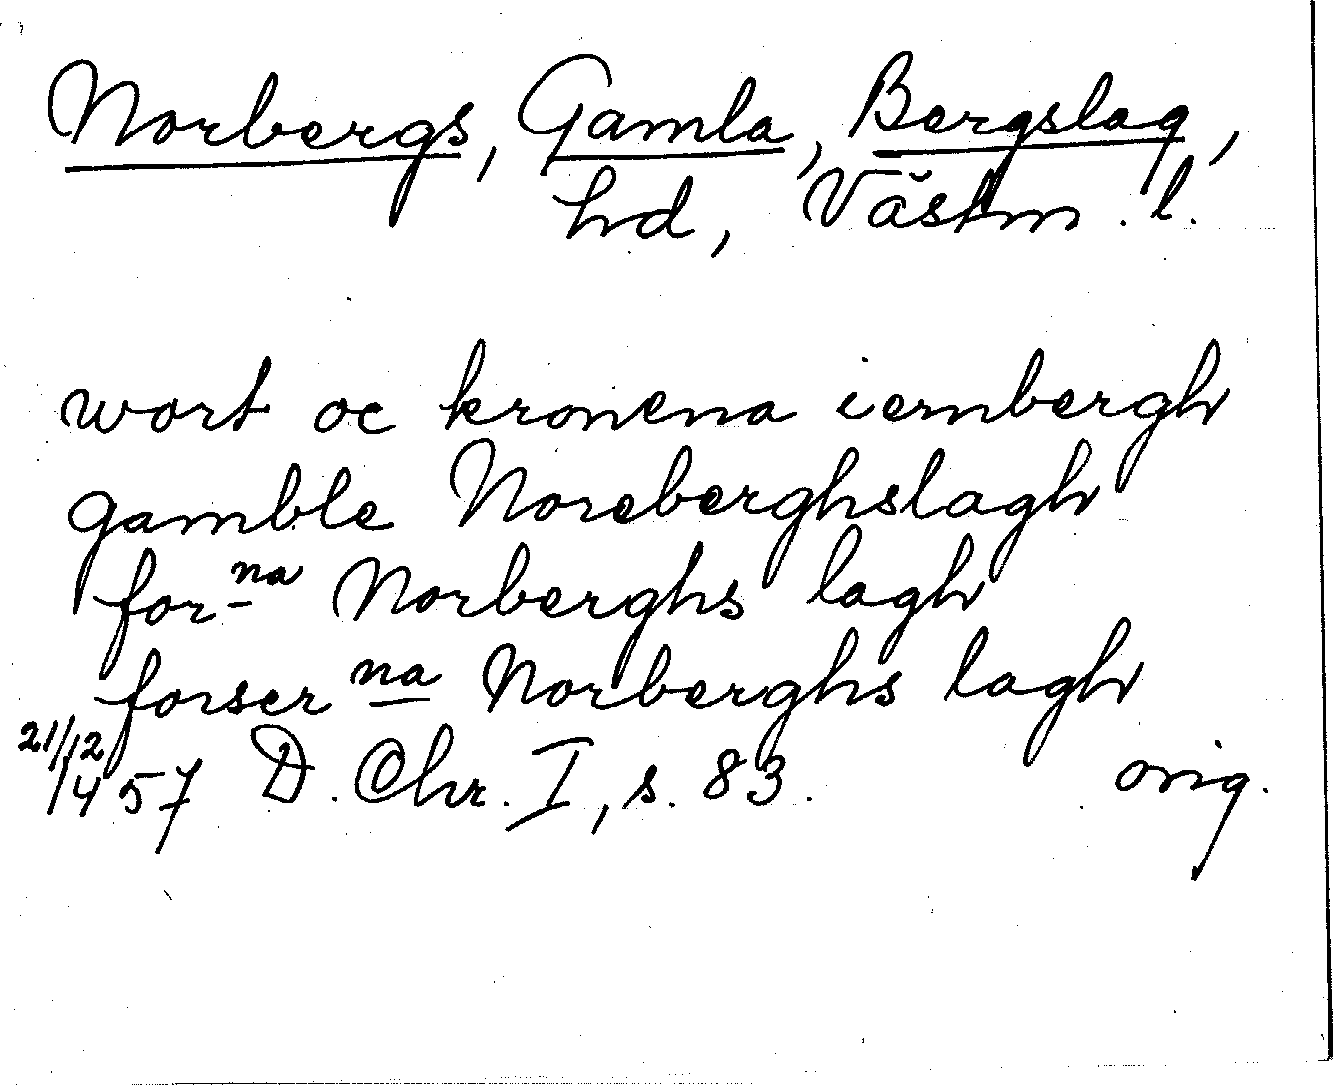 Norbergs, Gamla, Bergslag,
hd, Västm. l.
wort oc kronena iernbergh
gamble Noreberghslagh
for na Norberghs lagh
forser na Norberghs lagh
21/12 1457 D. Chr. I, s. 83. orig.